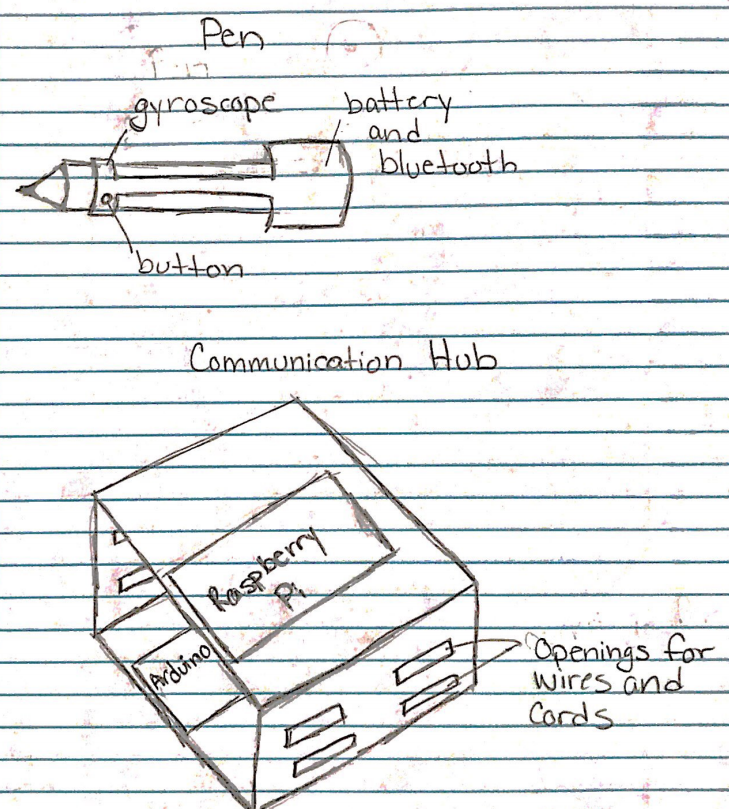 Pen
gyroscope
battery
and
bluetooth
button
Communication Hub
Raspberry
Pi
Arduino
Openings for
wires and
Cords